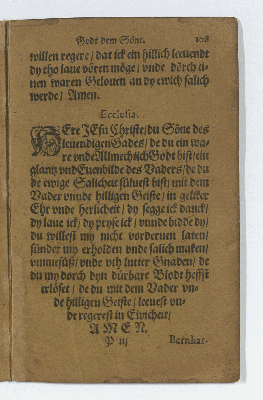 Godt dem Söne. 102
willen regere / dat ick ein hillich leeuendt
dy tho laue vören möge / vnde dörch ei-
nen waren Gelouen an dy ewich salich
werde / Amen.
Ecclesia.
HEre JEsu Christe / du Söne des
leuendigen Gades / de du ein wa-
re vnde Allmechtich Godt bist / ein
glantz vnd Euenbilde des Vaders / de du
de ewige Salicheit süluest bist / mit dem
Vader vnnde hilligen Geiste / in geliker
Ehr vnde herlicheit / dy segge ick danck /
dy laue ick / dy pryse ick / vnnde bidde dy /
du willest my nicht vorderuen laten /
sünder my erholden vnde salich maken /
vmmesüß / vnde vth lutter Gnaden / de
du my dorch dyn dürbare Blodt heffst
erlöset / de du mit dem Vader vn-
de hilligen Geiste / leeuest vn-
de regerest in Ewicheit /
AMEN.
P iij Bernhar-